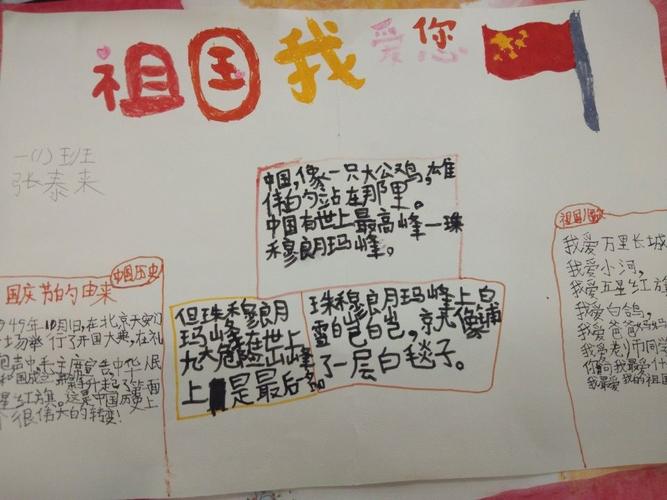 祖国我爱您
一(1)班
张泰来
中国,像一只大公鸡,雄
伟的站在那里。
中国有世上最高峰一珠
穆朗玛峰。
中国历史
国庆节的由来
949年10月1日,在北京天安门
场举行了开国大典,在礼
炮声中,毛主席宣告中华人民
和国成立,
星红旗。这是中国历史上
个很伟大的转变!
但珠穆朗月
玛峰在世上
九大危险山峰
上是最后多
珠穆良月玛峰上白
雪白皑皑,京尤像铺
了一层白毯子。
祖国儿歌
我爱万里长城
我爱小河,
我爱五星红旗
我爱白鸽,
我爱爸爸妈妈
我爱老师同学
你问我最爱什
我最爱我的祖国